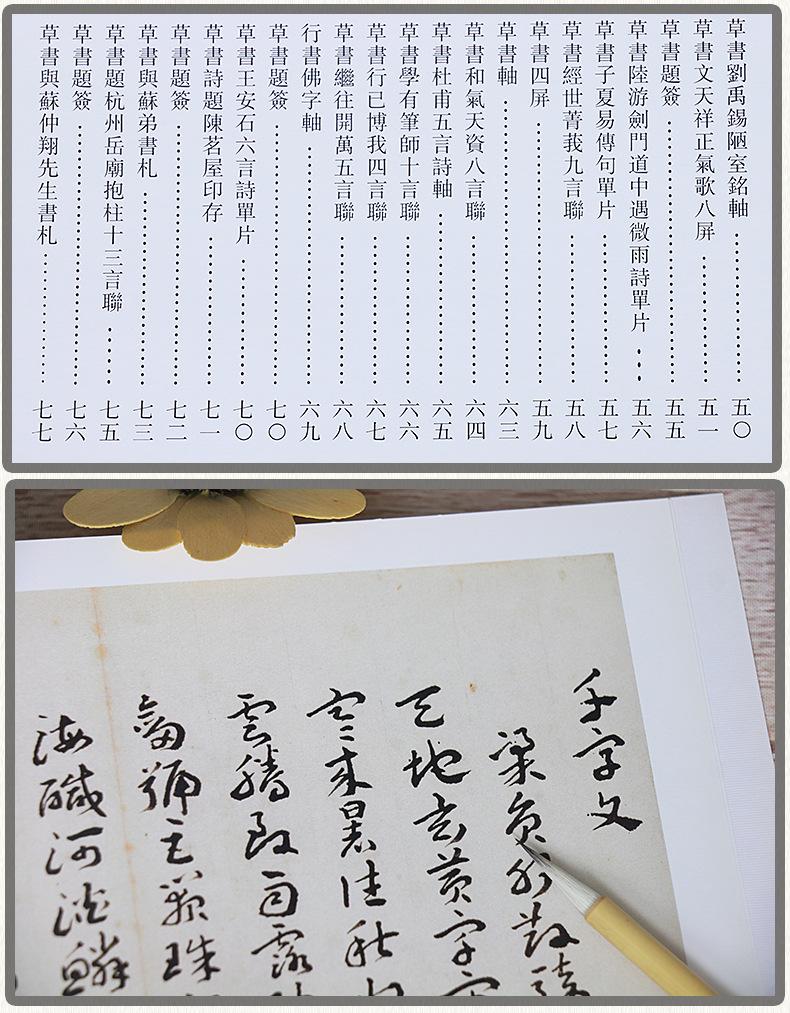 草書劉禹錫陋室銘軸……五〇
草書文天祥正氣歌八屏……五一
草書題簽……五五
草書陸游劍門道中遇微雨詩單片……五六
草書子夏易傳句單片……五七
草書經世菁莪九言聯……五八
草書四屏……五九
草書軸……六三
草書和氣天資八言聯……六四
草書杜甫五言詩軸……六五
草書學有筆師十言聯……六六
草書行已博我四言聯……六七
草書繼往開萬五言聯……六八
行書佛字軸……六九
草書題簽……七〇
草書王安石六言詩單片……七〇
草書詩題陳茗屋印存……七一
草書題簽……七二
草書與蘇弟書札……七三
草書題杭州岳廟抱柱十三言聯……七五
草書題簽……七六
草書與蘇仲翔先生書札……七七
千字文
梁員外散騎
天地玄黃宇宙
寒來暑往秋收
雲騰致雨露
劍號巨闕珠
海鹹河淡鱗